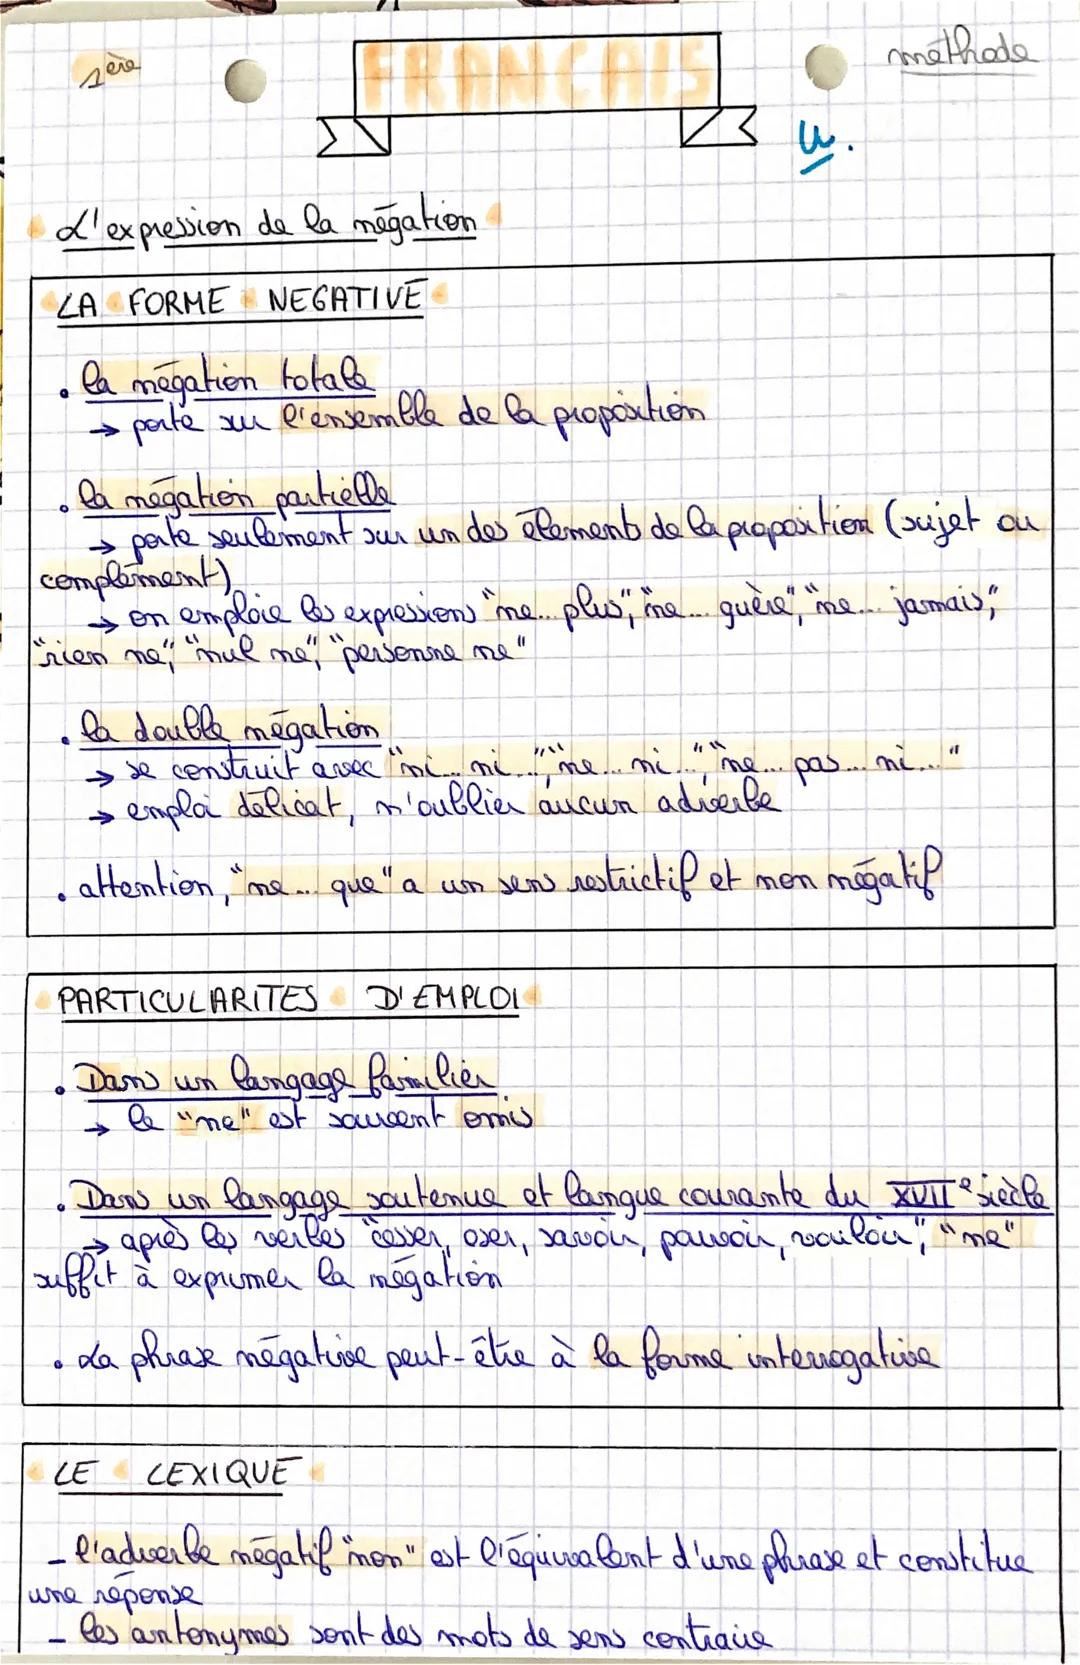 1ère
FRANCAIS
méthode
L'expression de la négation
LA FORME NEGATIVE
. la négation totale
→ porte sur l'ensemble de la proposition
. la négation partielle
→ porte seulement sur un des élements de la proposition (sujet ou
complément)
→ on emploie les expressions "ne... plus", "ne... guère", "ne... jamais",
"rien ne", "nul ne", "personne ne"
. la double négation
→ se construit avec "ni... ni...", "ne... ni...", "ne... pas... ni..."
→ emploi délicat, n'oublier aucun adverbe
. attention, "ne... que" a un sens restrictif et non négatif
PARTICULARITES D'EMPLOI
. Dans un langage familier
→ le "ne" est souvent omis
. Dans un langage soutenue et langue courante du XVIIe siècle
→ après les verbes "cesser, oser, savoir, pouvoir, vouloir", "ne"
suffit à exprimer la négation
. La phrase négative peut-être à la forme interrogative
LE LEXIQUE
- l'adverbe négatif "non" est l'équivalent d'une phrase et constitue
une réponse
- les antonymes sont des mots de sens contraire